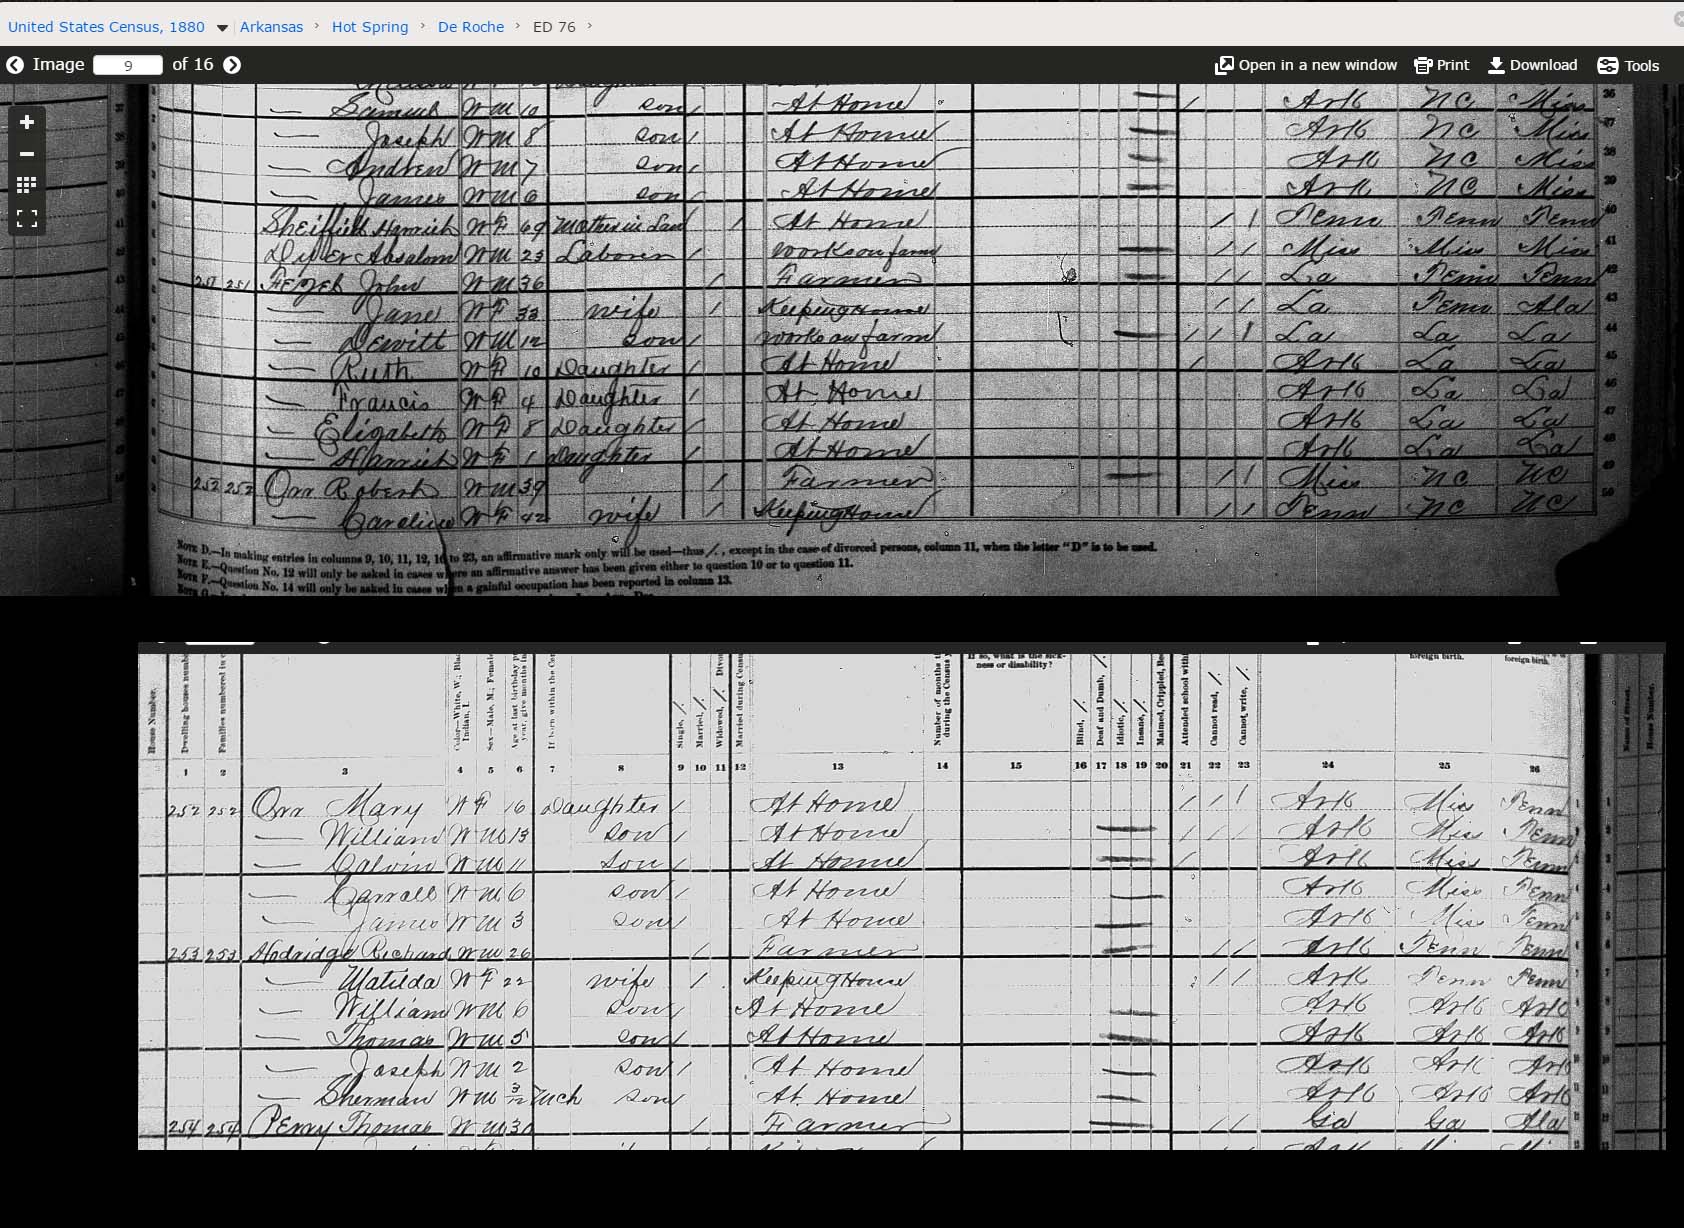 United States Census, 1880 Arkansas › Hot Spring › De Roche › ED 76 ›
Image 9 of 16 Open in a new window Print Download Tools
— Samuel W M 10 son / At Home / Ark NC Miss 36
— Joseph W M 8 son / At Home Ark NC Miss 37
— Andrew W M 7 son / At Home Ark NC Miss 38
— James W M 6 son / At Home Ark NC Miss 39
Sheiffield Harriett W F 69 Mother in Law / At Home / / Penn Penn Penn 40
Absalom W M 23 Laborer / works on farm / / Miss Miss Miss 41
251 251 John W M 36 / Farmer / / La Penn Penn
— Jane W F 33 wife / Keeping House / / La Penn Ala 43
— Dewitt W M 12 son / works on farm / / / La La La 44
— Ruth W F 10 Daughter / At Home / Ark La La 45
— Francis W F 4 Daughter / At Home Ark La La 46
— Elizabeth W F 8 Daughter / At Home Ark La La 47
— Harriett W F 1 Daughter / At Home Ark La La 48
252 252 Orr Robert W M 39 / Farmer / / Miss NC NC 49
— Caroline W F 42 wife / Keeping House / / Tenn NC NC 50
NOTE D.—In making entries in columns 9, 10, 11, 12, 16 to 23, an affirmative mark only will be used—thus /, except in the case of divorced persons, column 11, when the letter "D" is to be used.
NOTE E.—Question No. 12 will only be asked in cases where an affirmative answer has been given either to question 10 or to question 11.
NOTE F.—Question No. 14 will only be asked in cases when a gainful occupation has been reported in column 13.
House Number.
Dwelling houses
Families numbered in
Color—White, W.; Indian, I.
Sex—Male, M.; Female
Age at last birthday year, give months in
If born within the
Single, /.
Married, /.
Widowed, /.
Married during Census
Number of months during the Census
If so, what is the sickness or disability?
Blind, /.
Deaf and Dumb, /.
Idiotic, /.
Insane, /.
Maimed, Crippled,
Attended school within
Cannot read, /.
Cannot write, /.
foreign birth.
foreign birth.
Name of Street.
House Number.
1 2 3 4 5 6 7 8 9 10 11 12 13 14 15 16 17 18 19 20 21 22 23 24 25 26
252 252 Orr Mary W F 16 Daughter / At Home / / / Ark Miss Tenn 1
— William W M 13 son / At Home / / / Ark Miss Tenn 2
— Calvin W M 11 son / At Home / Ark Miss Tenn 3
— Carroll W M 6 son / At Home Ark Miss Tenn 4
— James W M 3 son / At Home Ark Miss Tenn 5
253 253 Richard W M 26 / Farmer / / Ark Tenn Tenn 6
— Matilda W F 22 wife / Keeping House / / Ark Tenn Tenn 7
— William W M 6 son / At Home Ark Ark Ark 8
— Thomas W M 5 son / At Home Ark Ark Ark 9
— Joseph W M 2 son / At Home Ark Ark Ark 10
— Sherman W M 3/12 Mch son / At Home Ark Ark Ark 11
254 254 Perry Thomas W M / Farmer / / Ga Ga Ala